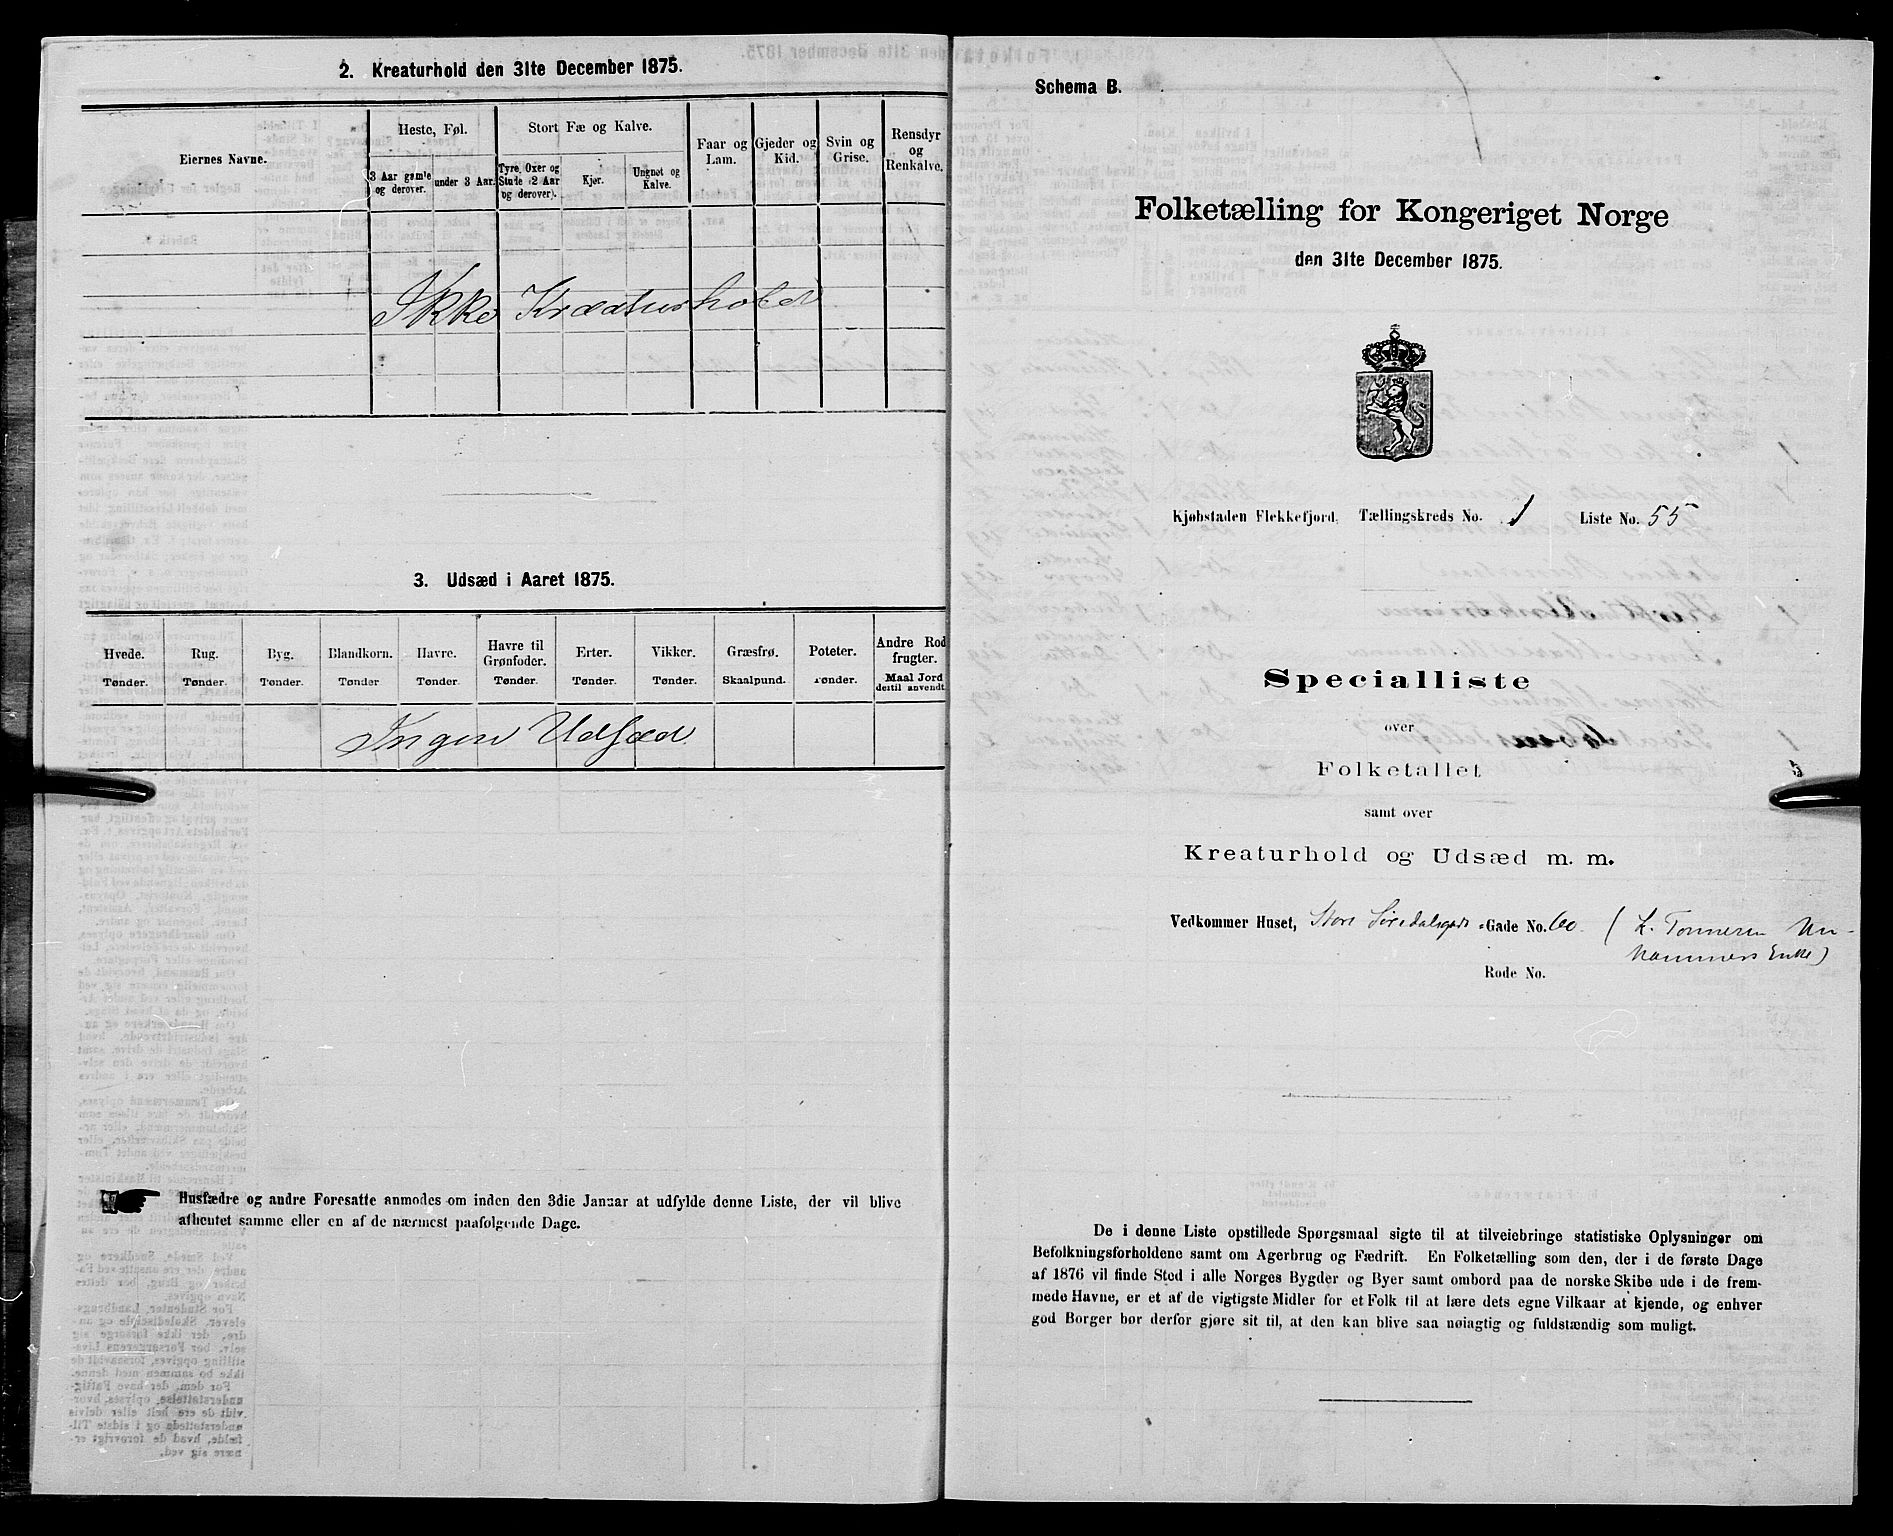 2. Kreaturhold den 31te December 1875.
Eiernes Navne.
Heste, Føl.
Stort Fæ og Kalve.
Faar og Lam.
Gjeder og Kid.
Svin og Grise.
Rensdyr og Renkalve.
3 Aar gamle og derover.
under 3 Aar.
Tyre, Oxer og Stude (2 Aar og derover).
Kjør.
Ungnøt og Kalve.
Ikke Kreaturhold
3. Udsæd i Aaret 1875.
Hvede. Rug. Byg. Blandkorn. Havre. Havre til Grønfoder. Erter. Vikker. Græsfrø. Poteter. Andre Rodfrugter.
Tønder. Tønder. Tønder. Tønder Tønder. Tønder. Tønder. Tønder. Skaalpund. Tønder. Maal Jord dertil anvendt.
Ingen Udsæd
Husfædre og andre Foresatte anmodes om inden den 3die Januar at udfylde denne Liste, der vil blive
afhentet samme eller en af de nærmest paafølgende Dage.
Schema B.
Folketælling for Kongeriget Norge
den 31te December 1875.
Kjøbstaden Flekkefjord, Tællingskreds No. 1 Liste No. 55
Specialliste
over
Folketallet
samt over
Kreaturhold og Udsæd m. m.
Vedkommer Huset, Store Gade No. 60.
Enke)
Rode No.
De i denne Liste opstillede Spørgsmaal sigte til at tilveiebringe statistiske Oplysninger om
Befolkningsforholdene samt om Agerbrug og Fædrift. En Folketælling som den, der i de første Dage
af 1876 vil finde Sted i alle Norges Bygder og Byer samt ombord paa de norske Skibe ude i de frem-
mede Havne, er et af de vigtigste Midler for et Folk til at lære dets egne Vilkaar at kjende, og enhver
god Borger bør derfor gjøre sit til, at den kan blive saa nøiagtig og fuldstændig som muligt.